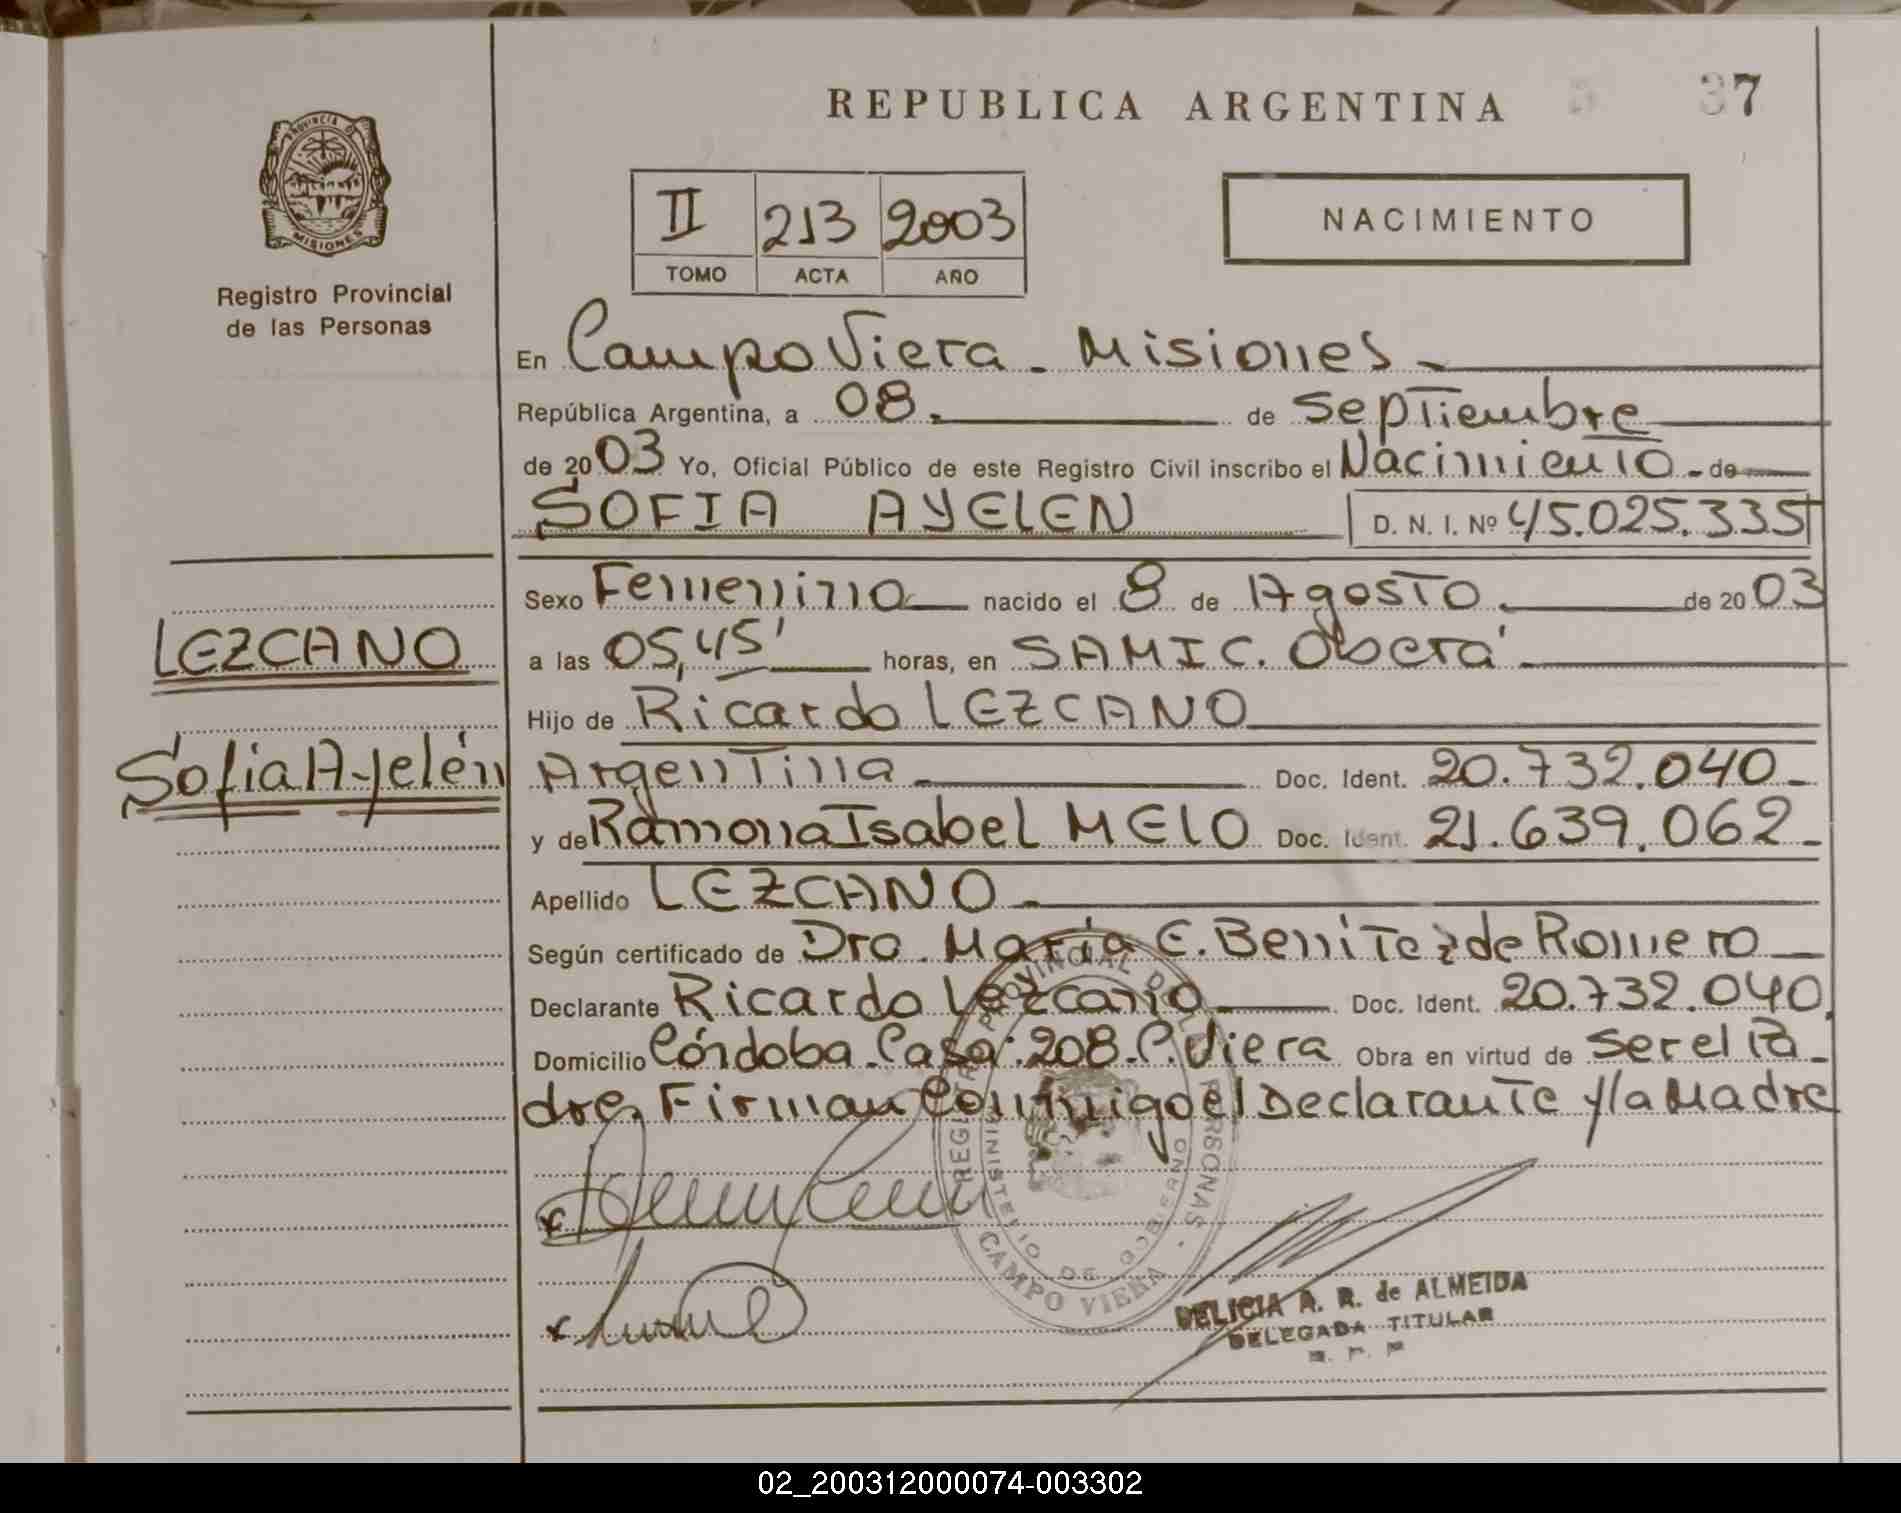 REPUBLICA ARGENTINA
37
PROVINCIA DE
MISIONES
Registro Provincial
de las Personas
II 213 2003
TOMO ACTA AÑO
NACIMIENTO
En Campo Viera - Misiones -
República Argentina, a 08. de Septiembre
de 2003 Yo, Oficial Público de este Registro Civil inscribo el Nacimiento - de
SOFIA AYELEN D. N. I. Nº 45.025.335
Sexo Femenino nacido el 8 de Agosto de 2003
LEZCANO
a las 05,45' horas, en SAMIC. Oberá
Hijo de Ricardo LEZCANO
Sofia Ayelén
Argentina Doc. Ident. 20.732.040-
y de Ramona Isabel MELO Doc. Ident. 21.639.062-
Apellido LEZCANO -
Según certificado de Dra. María E. Benitez de Romero
Declarante Ricardo Lezcano Doc. Ident. 20.732.040.
Domicilio Córdoba. Casa: 208. C. Viera Obra en virtud de ser el Pa-
dre. Firman Conmigo el Declarante y la Madre
REGISTRO PROVINCIAL DE LAS PERSONAS
MINISTERIO DE GOBIERNO
CAMPO VIERA
DELICIA A. R. de ALMEIDA
DELEGADA TITULAR
02_200312000074-003302